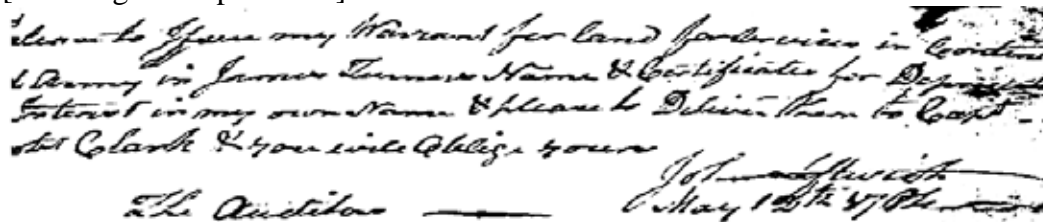 to Issue my Warrant for land for Services in
Army in James Turners Name & Certificates for
Interest in my own Name & please to Deliver them to Capt
Clark & you will Oblige yours
John
The Auditor May